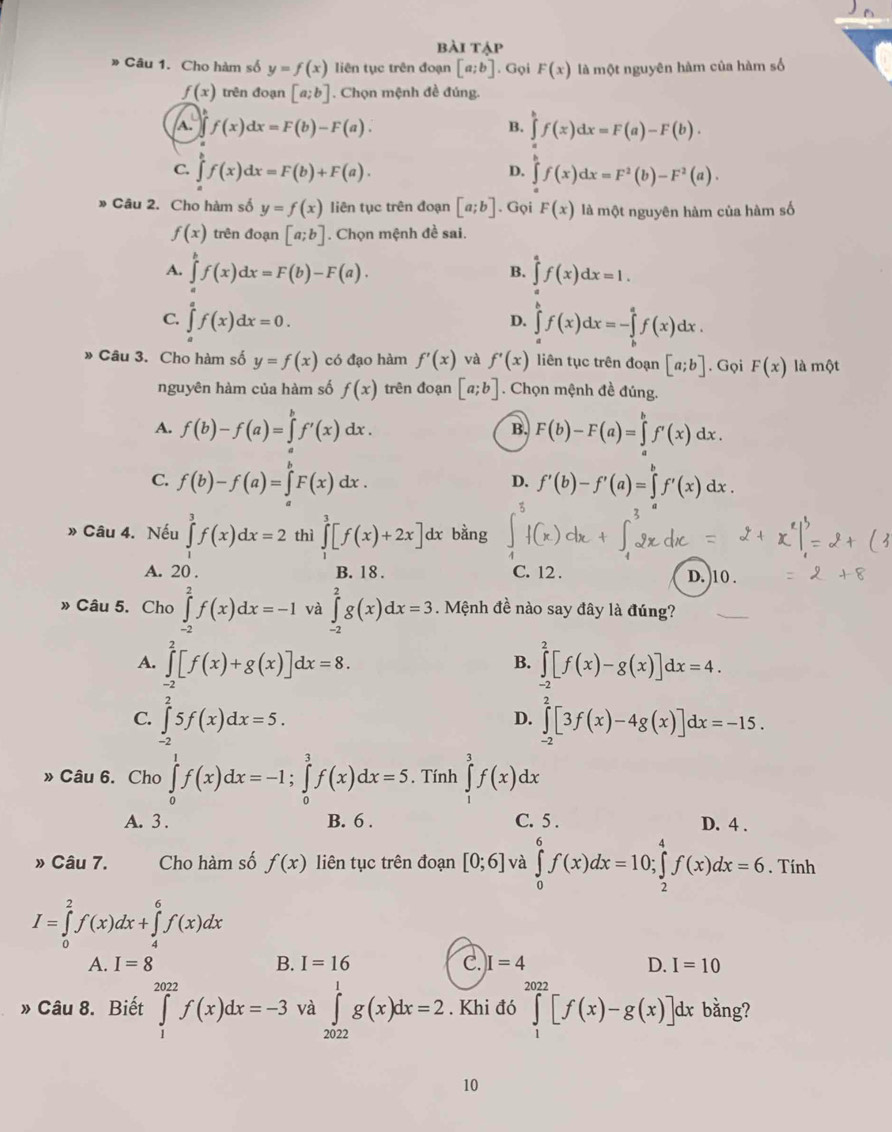 BÀI TẬP
» Câu 1. Cho hàm số y = f(x) liên tục trên đoạn [a;b]. Gọi F(x) là một nguyên hàm của hàm số
f(x) trên đoạn [a;b]. Chọn mệnh đề đúng.
A. ∫_a^b f(x)dx = F(b) − F(a). B. ∫_a^b f(x)dx = F(a) − F(b).
C. ∫_a^b f(x)dx = F(b) + F(a). D. ∫_a^b f(x)dx = F²(b) − F²(a).
» Câu 2. Cho hàm số y = f(x) liên tục trên đoạn [a;b]. Gọi F(x) là một nguyên hàm của hàm số
f(x) trên đoạn [a;b]. Chọn mệnh đề sai.
A. ∫_a^b f(x)dx = F(b) − F(a). B. ∫_a^a f(x)dx = 1.
C. ∫_a^a f(x)dx = 0. D. ∫_a^b f(x)dx = −∫_b^a f(x)dx.
» Câu 3. Cho hàm số y = f(x) có đạo hàm f'(x) và f'(x) liên tục trên đoạn [a;b]. Gọi F(x) là một
nguyên hàm của hàm số f(x) trên đoạn [a;b]. Chọn mệnh đề đúng.
A. f(b) − f(a) = ∫_a^b f'(x) dx. B. F(b) − F(a) = ∫_a^b f'(x) dx.
C. f(b) − f(a) = ∫_a^b F(x) dx. D. f'(b) − f'(a) = ∫_a^b f'(x) dx.
» Câu 4. Nếu ∫_1^3 f(x)dx = 2 thì ∫_1^3 [f(x) + 2x]dx bằng ∫_1^3 f(x) dx + ∫_1^3 2x dx = 2 + x²|_1^3 = 2 + (3
A. 20. B. 18. C. 12. D. 10. = 2 + 8
» Câu 5. Cho ∫_{-2}^2 f(x)dx = −1 và ∫_{-2}^2 g(x)dx = 3. Mệnh đề nào say đây là đúng?
A. ∫_{-2}^2 [f(x) + g(x)]dx = 8. B. ∫_{-2}^2 [f(x) − g(x)]dx = 4.
C. ∫_{-2}^2 5f(x)dx = 5. D. ∫_{-2}^2 [3f(x) − 4g(x)]dx = −15.
» Câu 6. Cho ∫_0^1 f(x)dx = −1; ∫_0^3 f(x)dx = 5. Tính ∫_1^3 f(x)dx
A. 3. B. 6. C. 5. D. 4.
» Câu 7. Cho hàm số f(x) liên tục trên đoạn [0;6] và ∫_0^6 f(x)dx = 10; ∫_2^4 f(x)dx = 6. Tính
I = ∫_0^2 f(x)dx + ∫_4^6 f(x)dx
A. I = 8 B. I = 16 C. I = 4 D. I = 10
» Câu 8. Biết ∫_1^2022 f(x)dx = −3 và ∫_2022^1 g(x)dx = 2. Khi đó ∫_1^2022 [f(x) − g(x)]dx bằng?
10